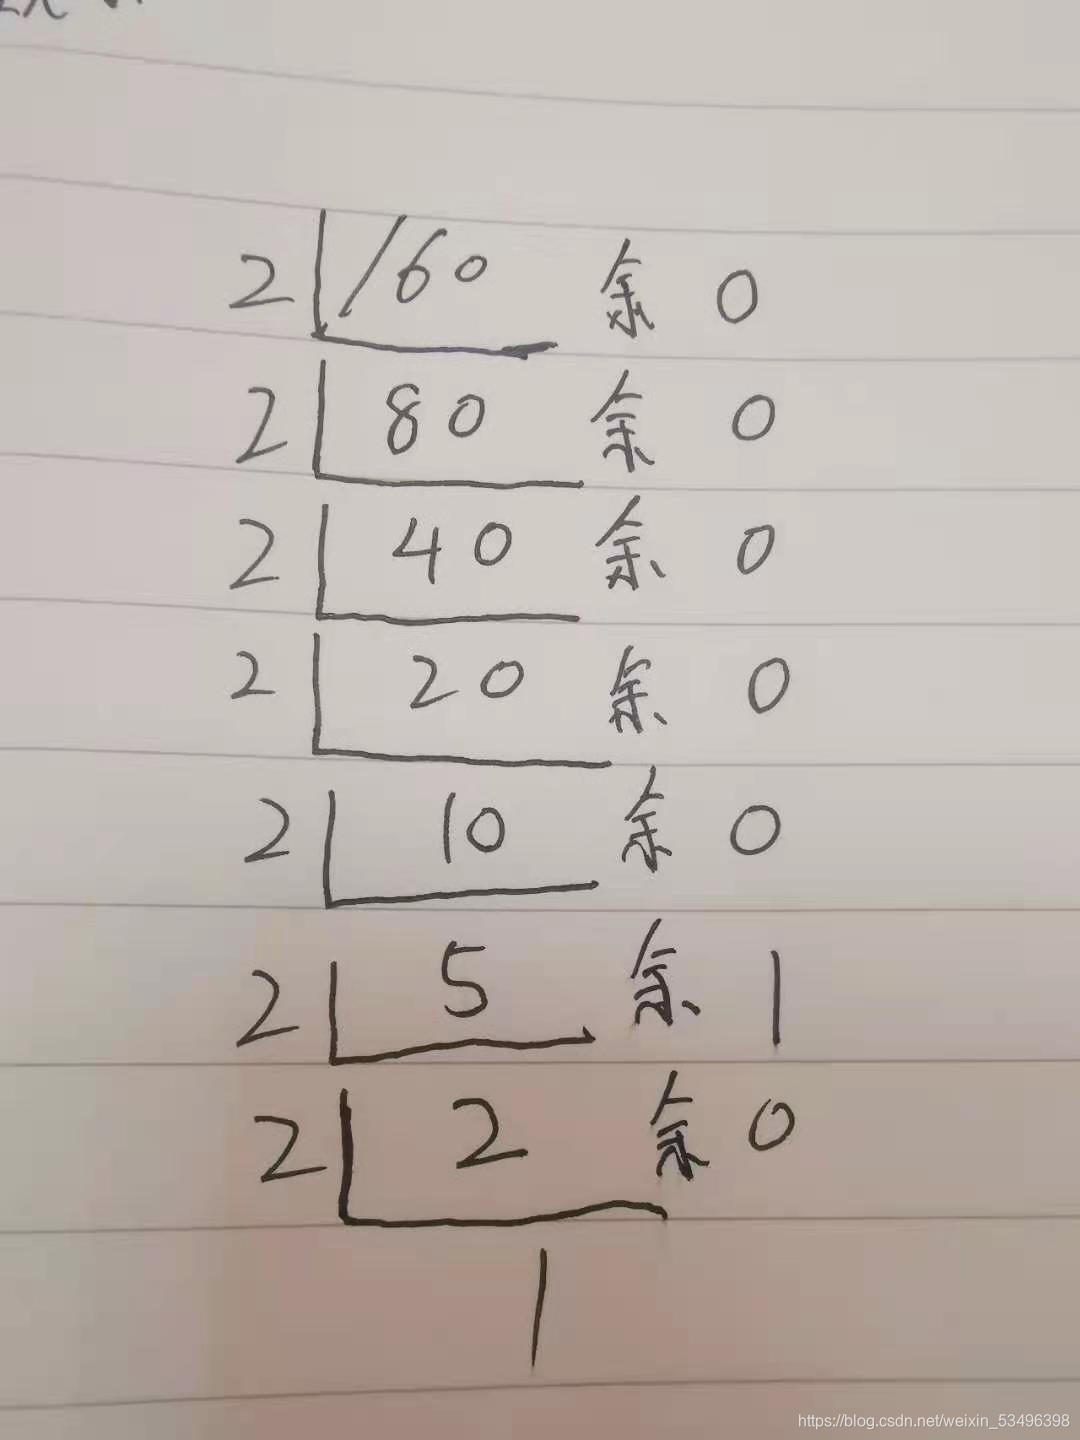 2 160 余 0
2 80 余 0
2 40 余 0
2 20 余 0
2 10 余 0
2 5 余 1
2 2 余 0
1
https://blog.csdn.net/weixin_53496398